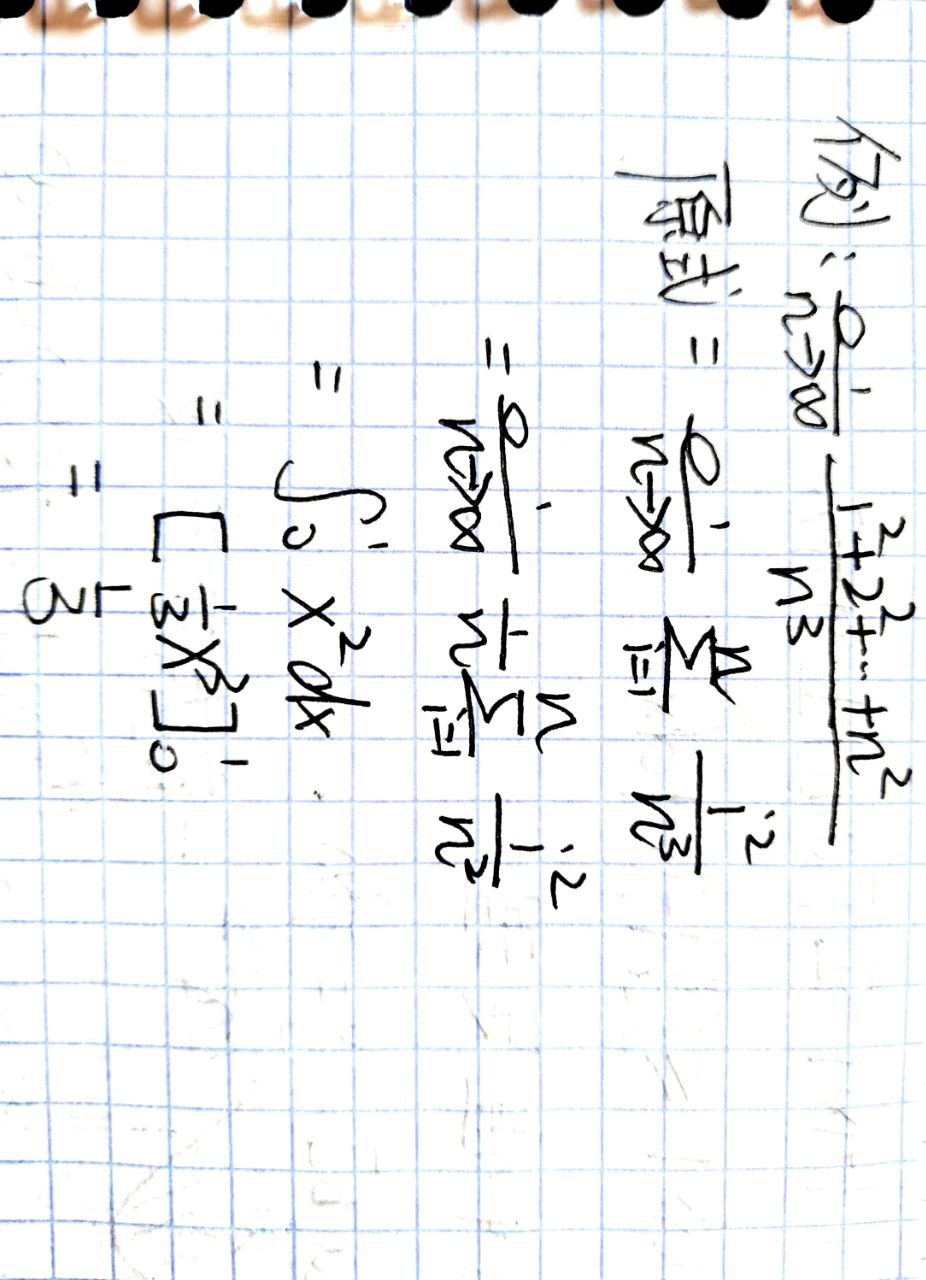 例: lim n→∞ (1²+2²+…+n²)/n³
原式 = lim n→∞ Σ i=1 n i²/n³
= lim n→∞ 1/n Σ i=1 n i²/n²
= ∫₀¹ x² dx
= [1/3 x³]₀¹
= 1/3